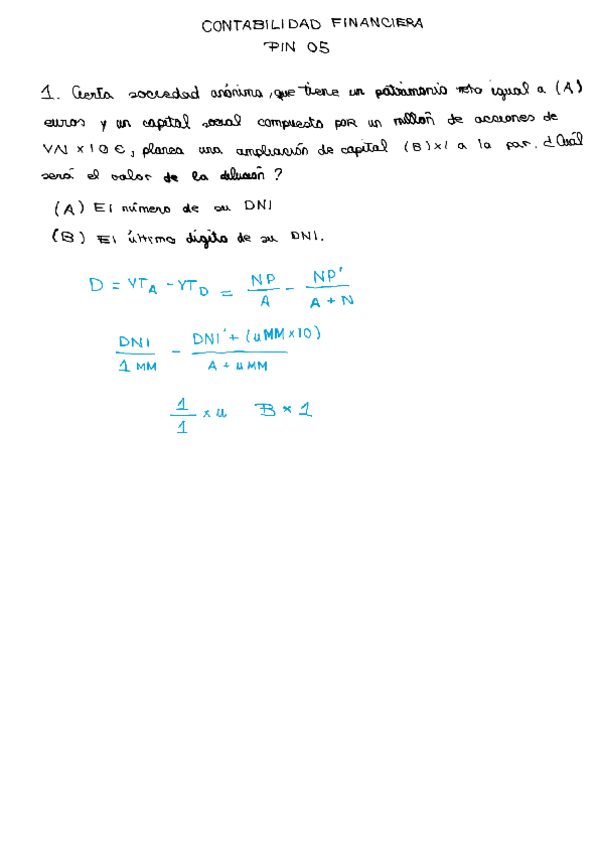 CONTABILIDAD FINANCIERA
PIN 05
1. Cierta sociedad anónima, que tiene un patrimonio neto igual a (A)
euros y un capital social compuesto por un millón de acciones de
VN x 10 €, planea una ampliación de capital (B)x1 a la par. ¿Cuál
será el valor de la dilución?
(A) El número de su DNI
(B) El último dígito de su DNI.
D = VT_A - VT_D = NP / A - NP' / A + N
DNI / 1 MM - DNI' + (uMM x 10) / A + uMM
1 / 1 x u B x 1